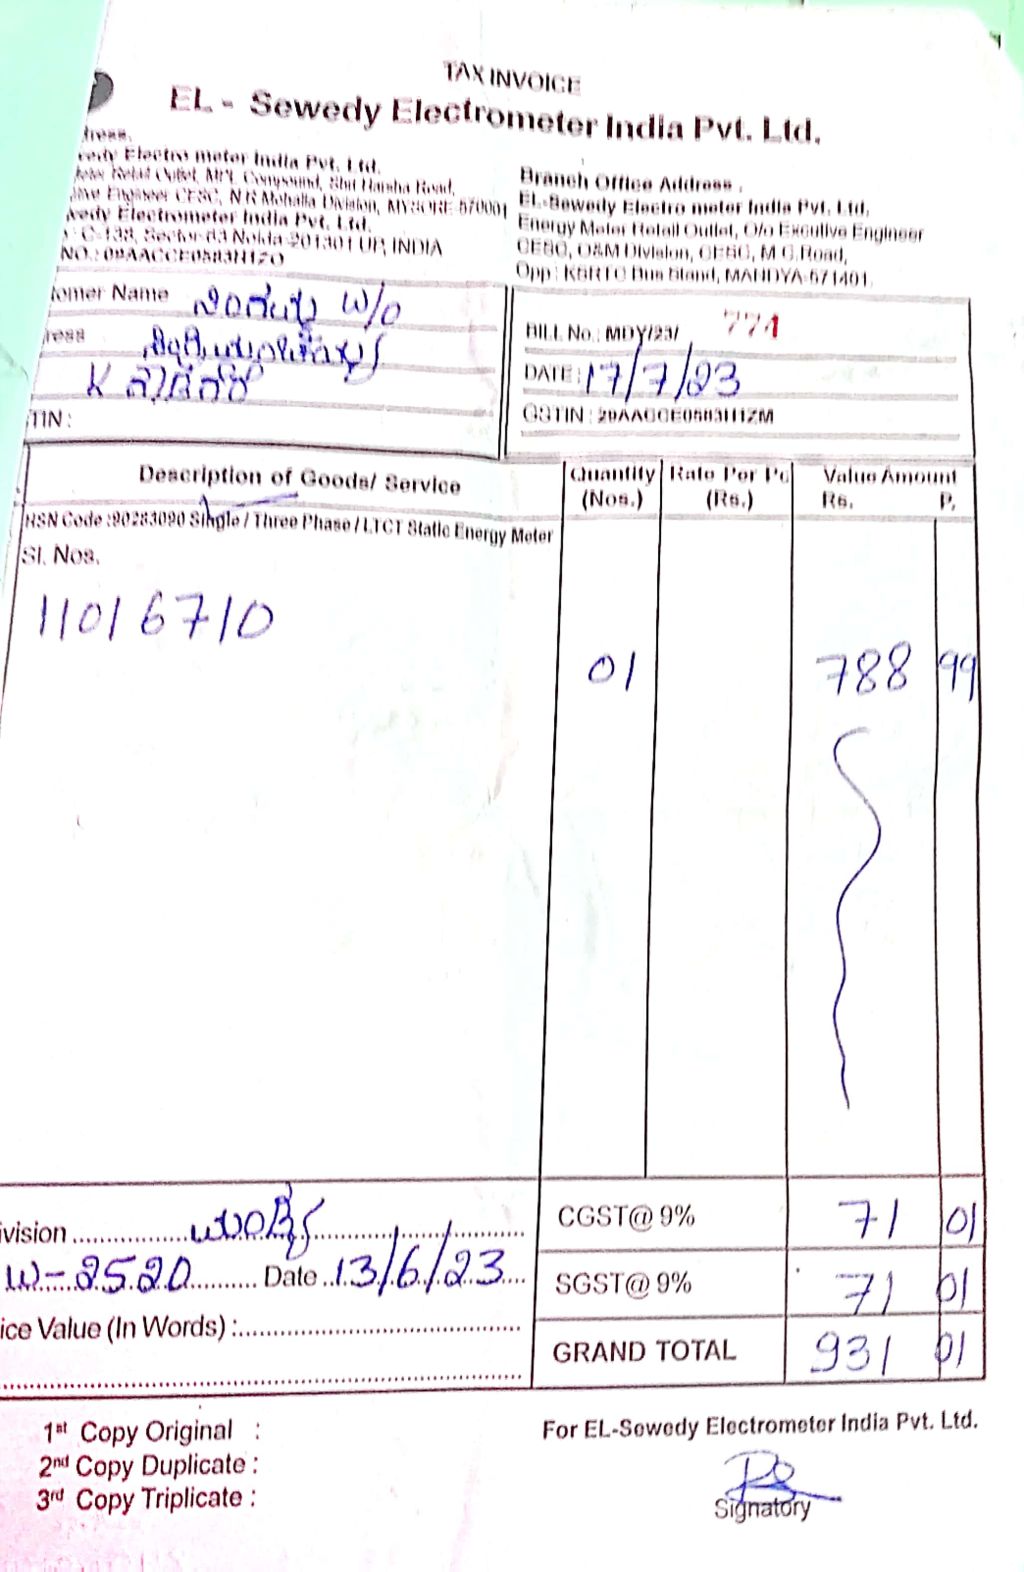 TAX INVOICE
EL - Sewedy Electrometer India Pvt. Ltd.
dress.
wedy Electro meter India Pvt. Ltd.
Retail Outlet, MPL Compound, Shri Harsha Road,
Engineer CESC, N R Mohalla Division, MYSORE-570001
wedy Electrometer India Pvt. Ltd.
C-138, Sector-63 Noida-201301 UP, INDIA
NO.: 09AACCE0583H1ZO
Branch Office Address .
EL-Sewedy Electro meter India Pvt. Ltd.
Energy Meter Retail Outlet, O/o Excutive Engineer
CESC, O&M Division, CESC, M.C.Road,
Opp : KSRTC Bus Stand, MANDYA-571401.
omer Name W/o
ress
K
TIN :
BILL No.: MDY/23/ 774
DATE : 17/7/23
GSTIN : 29AACCE0583H1ZM
Description of Goods/ Service
Quantity (Nos.)
Rate Per Pc (Rs.)
Value Amount
Rs. P.
HSN Code :90283090 Single / Three Phase / LTCT Static Energy Meter
Sl. Nos.
11016710
01 788 99
ivision ಮಂಡ್ಯ
CGST@ 9% 71 01
W-2520 Date 13/6/23
SGST@ 9% 71 01
ice Value (In Words) :
GRAND TOTAL 931 01
1st Copy Original :
2nd Copy Duplicate :
3rd Copy Triplicate :
For EL-Sewedy Electrometer India Pvt. Ltd.
Signatory